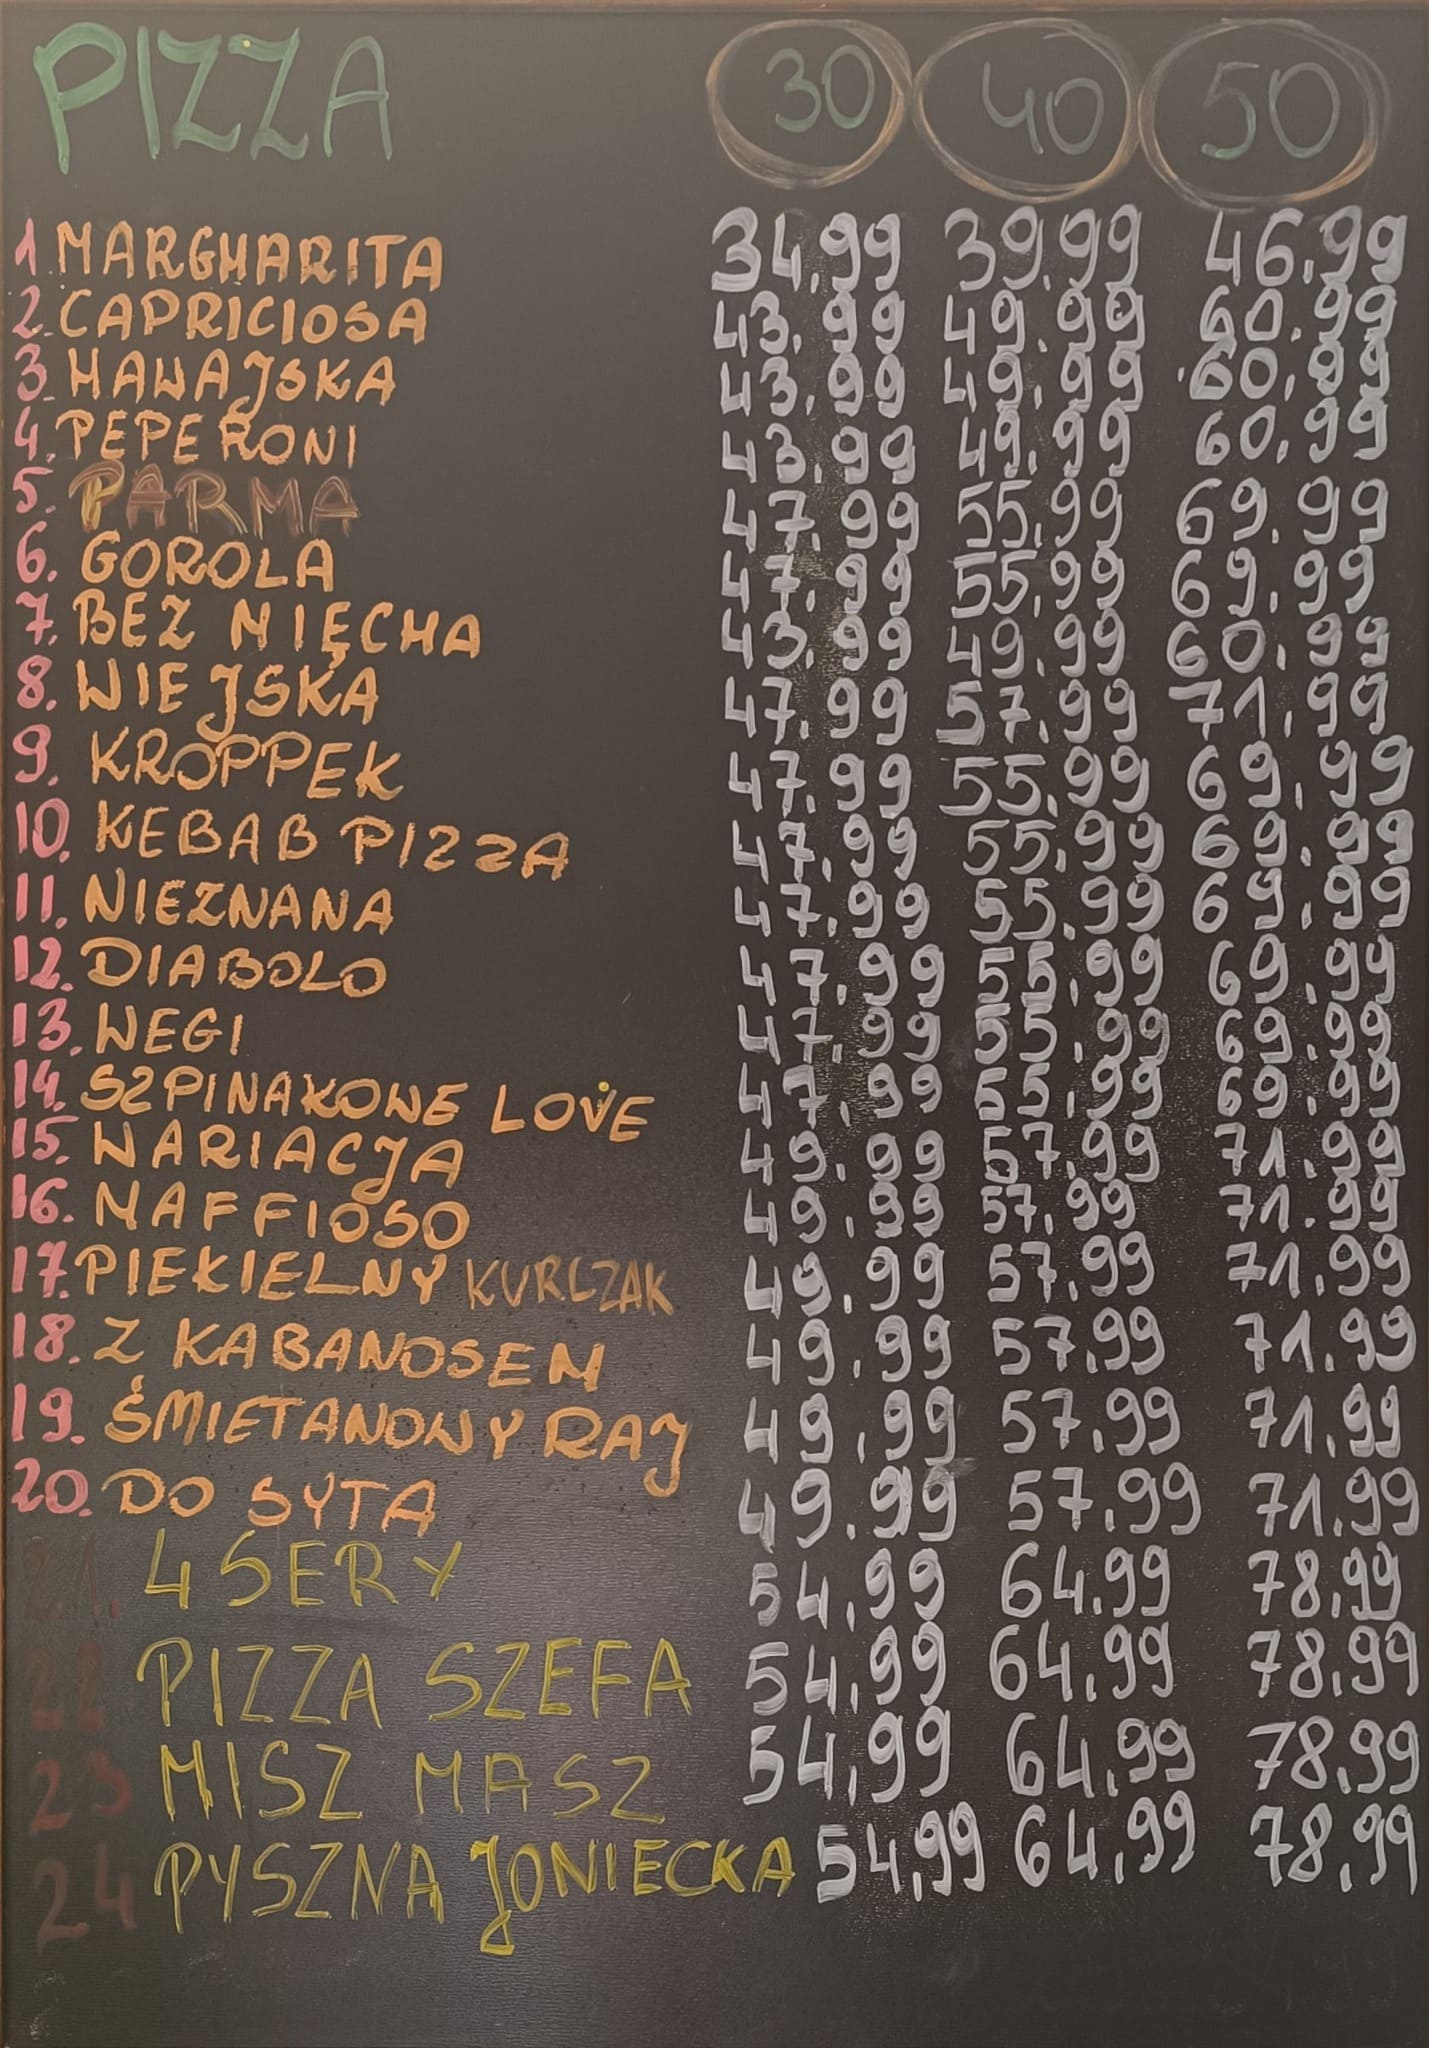 PIZZA 30 40 50
1. MARGHARITA 34.99 39.99 46.99
2. CAPRICIOSA 43.99 49.99 60.99
3. HAWAJSKA 43.99 49.99 60.99
4. PEPERONI 43.99 49.99 60.99
5. PARMA 47.99 55.99 69.99
6. GOROLA 47.99 55.99 69.99
7. BEZ MIĘCHA 43.99 49.99 60.99
8. WIEJSKA 47.99 57.99 71.99
9. KROPPEK 47.99 55.99 69.99
10. KEBAB PIZZA 47.99 55.99 69.99
11. NIEZNANA 47.99 55.99 69.99
12. DIABOLO 47.99 55.99 69.99
13. WEGI 47.99 55.99 69.99
14. SZPINAKOWE LOVE 47.99 55.99 69.99
15. WARIACJA 49.99 57.99 71.99
16. MAFFIOSO 49.99 57.99 71.99
17. PIEKIELNY KURCZAK 49.99 57.99 71.99
18. Z KABANOSEM 49.99 57.99 71.99
19. ŚMIETANOWY RAJ 49.99 57.99 71.99
20. DO SYTA 49.99 57.99 71.99
21. 4 SERY 54.99 64.99 78.99
22 PIZZA SZEFA 54.99 64.99 78.99
23 MISZ MASZ 54.99 64.99 78.99
24 PYSZNA JONIECKA 54.99 64.99 78.99